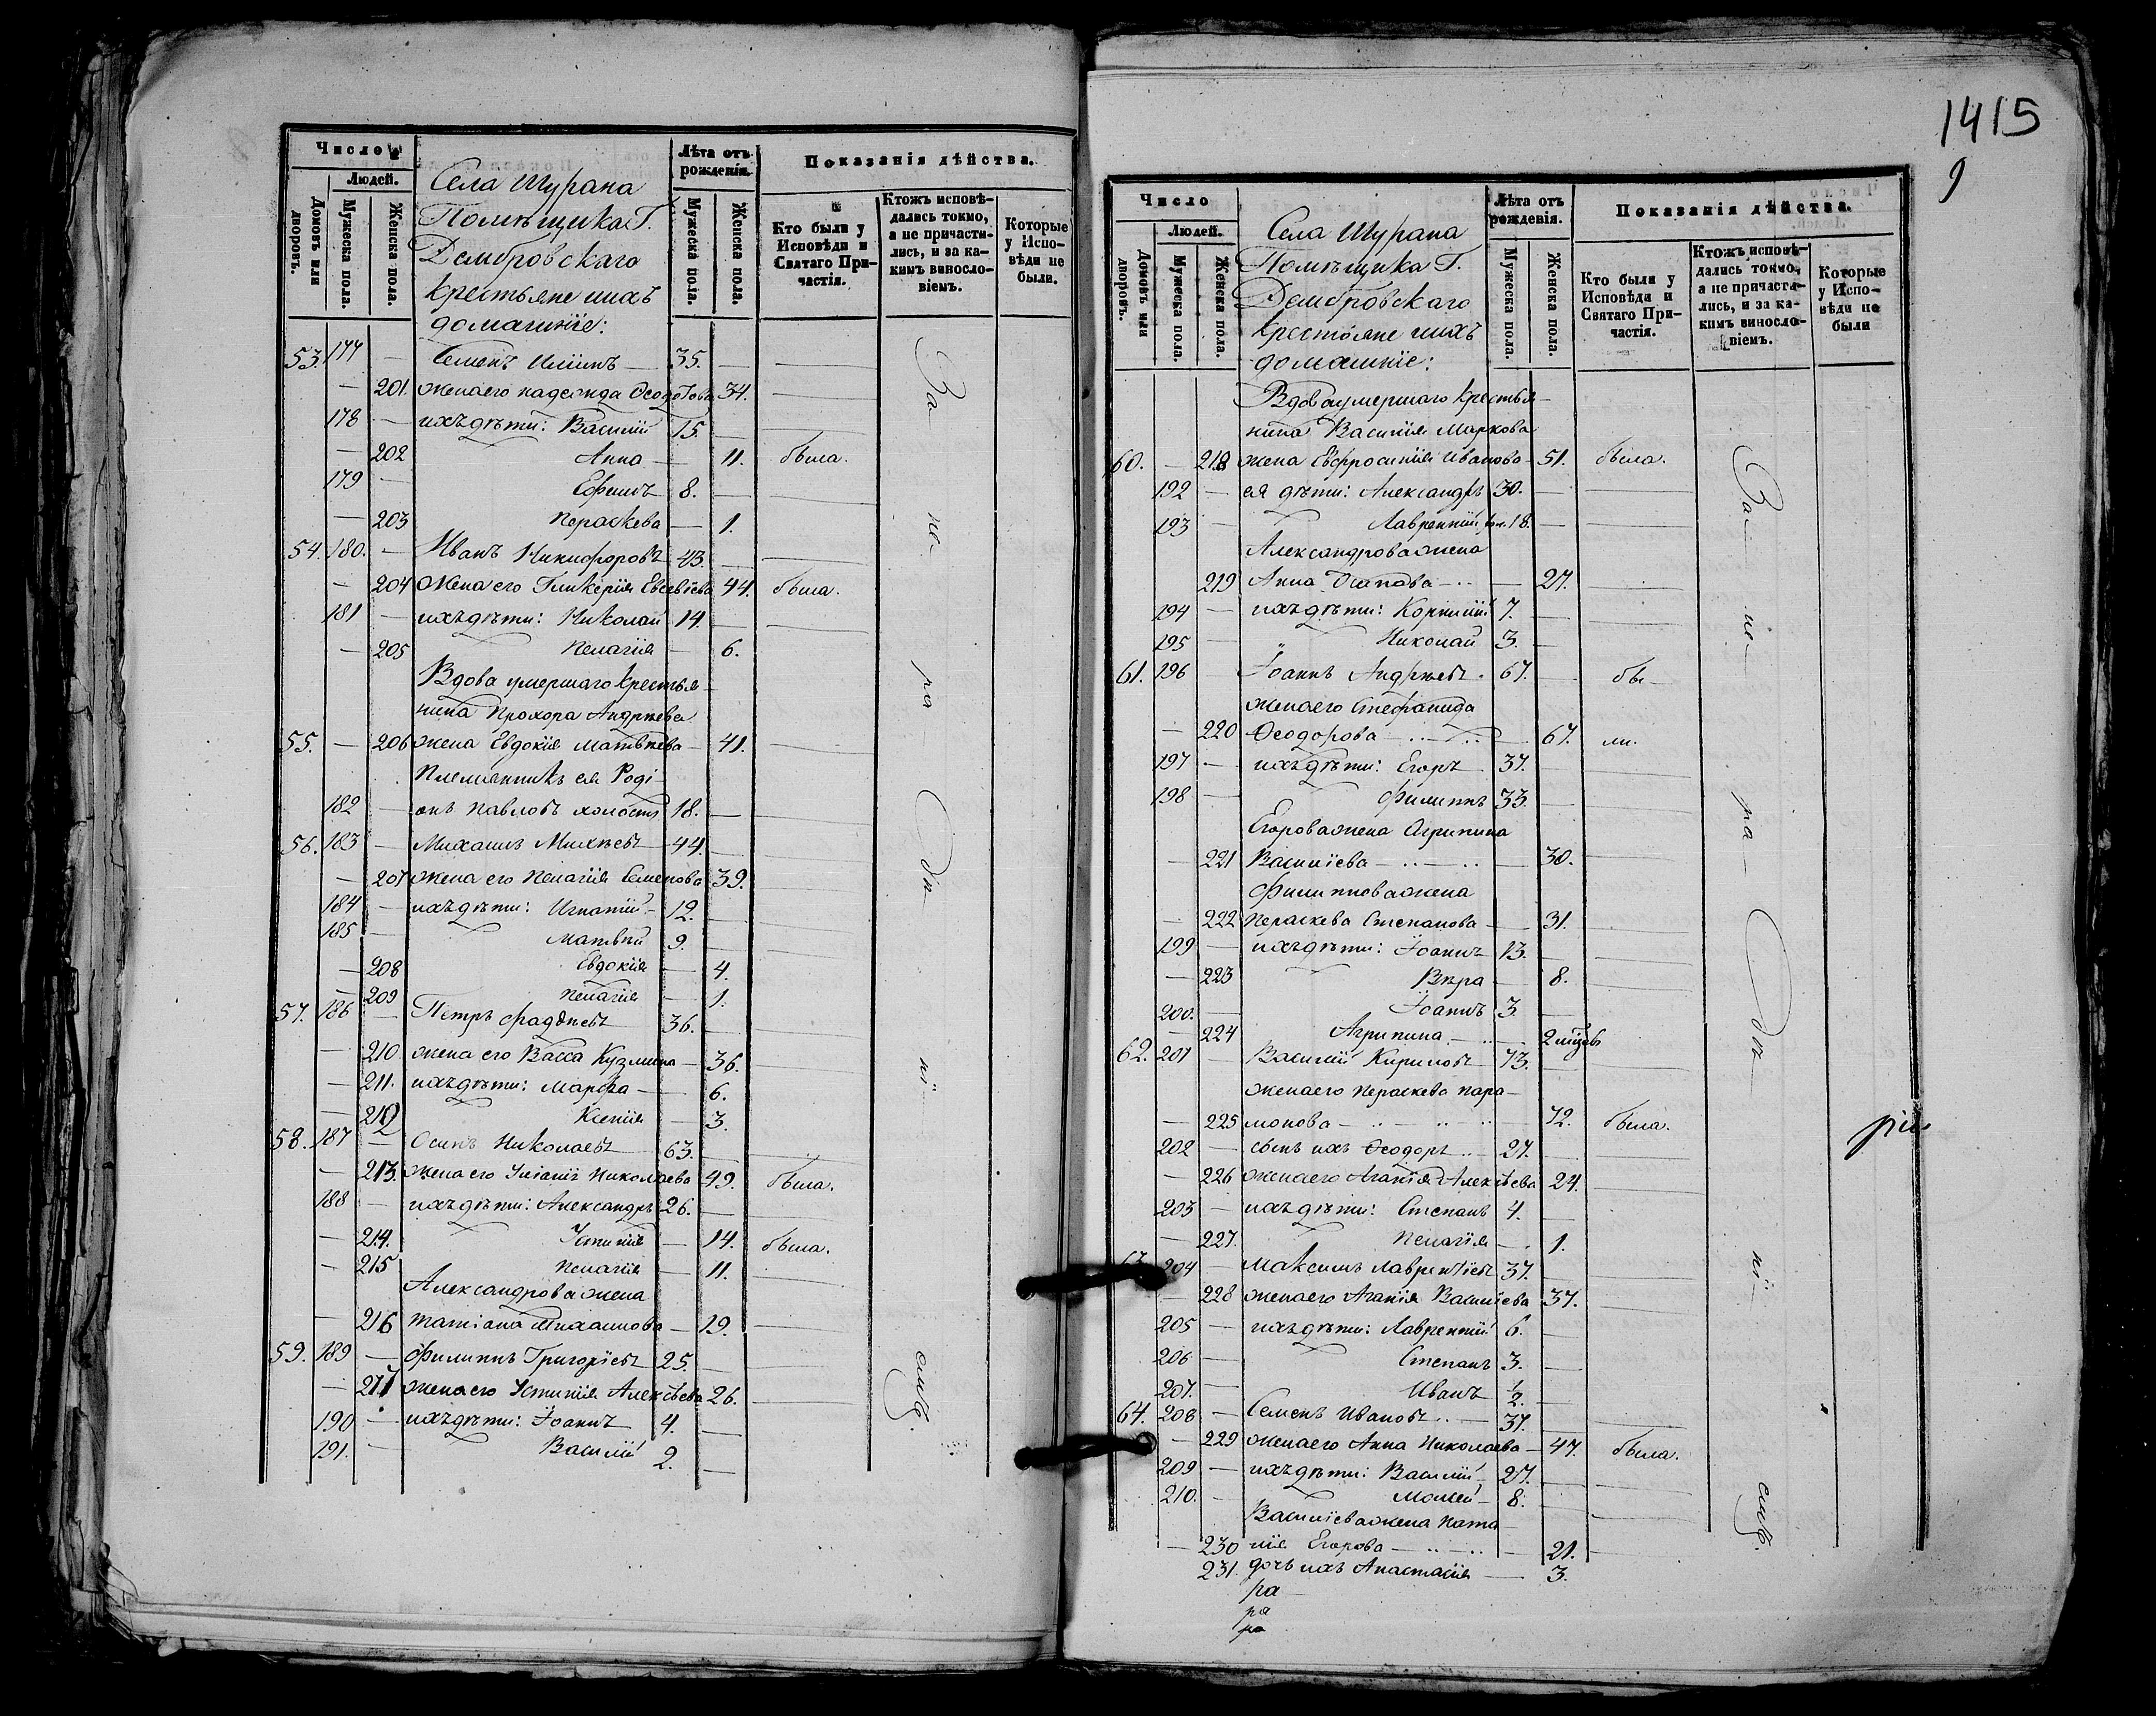 Число
Людей.
Домовъ или дворовъ.
Мужеска пола.
Женска пола.
Села Шурана
Помѣщика Г.
Дембровскаго
крестьяне ихъ
домашніе:
Лѣта отъ рожденія.
Мужеска пола.
Женска пола.
Показанія дѣйства.
Кто были у Исповѣди и Святаго При-частія.
Ктожъ исповѣ-дались токмо, а не причасти-лись, и за ка-кимъ винословіемъ.
Которые у Испо-вѣди не были.
53. 177 — Семенъ Ильинъ — 35. —
— 201. жена его Надежда Ѳедотова 34.
178 — ихъ дѣти: Василій 15. —
— 202 Анна — 11. была.
179 — Ефимъ 8. —
— 203 Пераскева — 1.
54. 180. — Иванъ Никифоровъ 43. —
— 204 жена его Гликерія Евсевіева 44. была.
181 — ихъ дѣти: Николай 14. —
— 205 Пелагія — 6.
Вдова умершаго крестья-
нина Прохора Андрѣева
55. — 206 жена Евдокія Матвѣева — 41.
Племянникъ ея Роді-
182 — онъ Павловъ холостъ 18. —
56. 183 — Михаилъ Михѣевъ — 44. —
— 207 жена его Пелагія Семенова 39.
184 — ихъ дѣти: Игнатій — 12. —
185 — Матвѣй 9. —
— 208 Евдокія — 4.
— 209 Пелагія — 1.
57. 186 — Петръ Фаддѣевъ 36. —
— 210 жена его Васса Кузмина — 36.
— 211. ихъ дѣти: Марфа — 6.
— 212 Ксенія — 3.
58. 187 — Осипъ Николаевъ 63. —
— 213. жена его Уліанія Николаева 49. была.
188 — ихъ дѣти: Александръ 26. —
— 214. Устинія — 14. была.
— 215 Пелагія — 11.
Александрова жена
— 216 Татіана Михаилова — 19.
59. 189 — Филиппъ Григорьевъ 25. —
— 217 жена его Устинія Алексѣева 26.
190 — ихъ дѣти: Іоаннъ 4. —
191. — Василій 2. —
За
не
ра
дѣ
ні
емъ.
1415
9
Число
Людей.
Домовъ или дворовъ.
Мужеска пола.
Женска пола.
Села Шурана
Помѣщика Г.
Дембровскаго
крестьяне ихъ
домашніе:
Лѣта отъ рожденія.
Мужеска пола.
Женска пола.
Показанія дѣйства.
Кто были у Исповѣди и Святаго При-частія.
Ктожъ исповѣ-дались токмо, а не причасти-лись, и за ка-кимъ винословіемъ.
Которые у Испо-вѣди не были
Вдова умершаго крестья-
нина Василія Маркова
60. — 218 жена Евфросинія Иванова — 51. была.
192 — ея дѣти: Александръ 30. —
193 — Лаврентій 18. —
Александрова жена
219 Анна Осипова — 27.
194 — ихъ дѣти: Корнилій 7. —
195 — Николай 3. —
61. 196 Іоаннъ Андрѣевъ 67. — бы-
жена его Стефанида
— 220 Ѳеодорова — 67. ли.
197 — ихъ дѣти: Егоръ 37. —
198 — Филиппъ 33. —
Егорова жена Агрипина
— 221 Василіева — 30.
Филиппова жена
— 222 Пераскева Степанова — 31.
199 — ихъ дѣти: Іоаннъ 13. —
— 223 Вѣра — 8.
200. — Іоаннъ 3. —
— 224 Агрипина — 2 мѣсяц.
62. 201 — Василій Кириловъ 73. —
жена его Пераскева Пара-
— 225 монова — 72. была.
202 — сынъ ихъ Ѳеодоръ 27. —
— 226 жена его Агапія Алексѣева 24.
203 — ихъ дѣти: Степанъ 4. —
— 227. Пелагія — 1.
63. 204 — Максимъ Лаврентіевъ 37. —
— 228 жена его Агапія Василіева 37.
205 — ихъ дѣти: Лаврентій 6. —
206 — Степанъ 3. —
207. — Иванъ ½. —
64. 208 — Семенъ Ивановъ — 37. —
— 229 жена его Анна Николаева — 47. была.
209 — ихъ дѣти: Василій 27. —
210. — Моисей 8. —
Василіева жена Ната-
— 230 лія Егорова — 21.
231. дочь ихъ Анастасія — 3.
ра
ра
ра
За-
не-
ра-
дѣ
ні-
емъ.